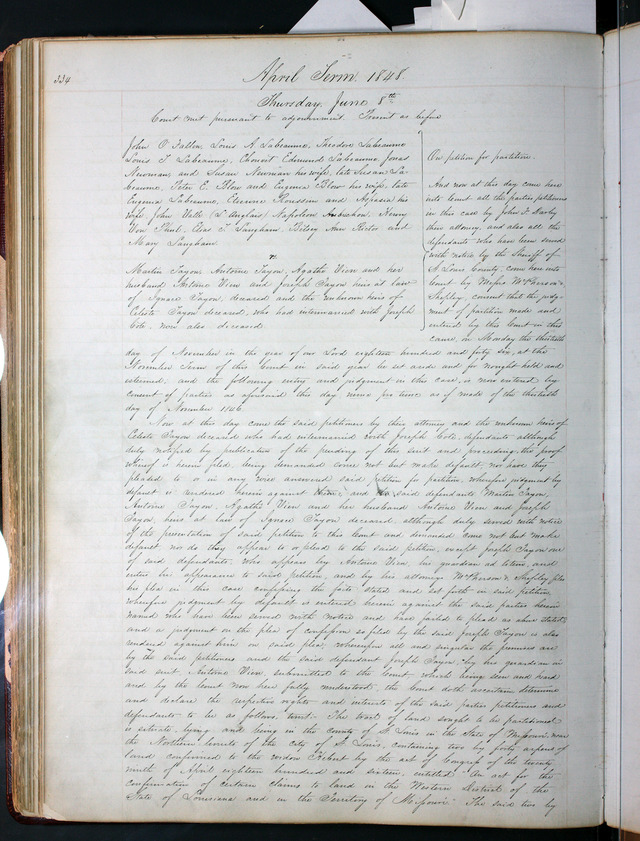 334
April Term 1848.
Thursday June 8th
Court met pursuant to adjournment Present as before
John O'Fallon, Louis A. Labeaume, Theodore Labeaume
Louis T. Labeaume, Chouvit Edmund Labeaume, Jonas
Newman and Susan Newman his wife, late Susan La-
beaume, Peter E. Blow and Eugenia Blow his wife, late
Eugenia Labeaume, Etienne Roussin and Aspasia his
wife, John Vallé (L'Anglais) Napoleon Aubuchon, Henry
Von Phul, Elias T. Langham, Betsey Ann Rector and
Mary Langham
vs
Martin Tayon, Antoine Tayon, Agatha Vien and her
husband Antoine Vien and Joseph Tayon heirs at law
of Ignace Tayon, deceased and the unknown heirs of
Celeste Tayon deceased, who had intermarried with Joseph
Coté, now also deceased
On petition for partition.
And now at this day come here
into Court all the parties petitioners
in this case by John F. Darby
their attorney, and also all the
defendants who have been served
with notice by the Sheriff of
St Louis County, come here into
Court by Messrs McPherson &
Shepley, consent that the judg-
ment of partition made and
entered by this Court in this
cause, on Monday the thirtieth
day of November in the year of our Lord eighteen hundred and forty six, at the
November Term of this Court in said year be set aside and for nought held and
esteemed, and the following entry and judgment in this case, is now entered by
consent of parties as aforesaid this day nunc pro tunc as if made of the thirtieth
day of November 1846.
Now at this day come the said petitioners by their attorney and the unknown heirs of
Celeste Tayon deceased who had intermarried with Joseph Coté, defendants although
duly notified by publication of the pending of this suit and proceeding, the proof
whereof is herein filed, being demanded come not but make default, nor have they
pleaded to or in any wise answered said petition for partition, wherefore judgment by
default is rendered herein against them; and the said defendants Martin Tayon
Antoine Tayon, Agatha Vien and her husband Antoine Vien and Joseph
Tayon, heirs at law of Ignace Tayon deceased, although duly served with notice
of the presentation of said petition to this Court and demanded came not but make
default nor do they appear to or plead to the said petition, except Joseph Tayon one
of said defendants, who appears by Antoine Vien, his guardian ad litem, and
enters his appearance to said petition, and by his attorneys McPherson & Shepley files
his plea in this case confessing the facts stated and set forth in said petition
wherefore judgment by default is entered herein against the said parties herein
named who have been served with notice and have failed to plead as above stated;
and a judgment on the plea of confession so filed by the said Joseph Tayon is also
rendered against him on said plea; wherefore all and singular the premises are
by the said petitioners and the said defendant Joseph Tayon, by his guardian in
said suit Antoine Vien, submitted to the Court, which being seen and heard
and by the Court now here fully understood, the Court doth ascertain determine
and declare the respective rights and interests of the said parties petitioners and
defendants to be as follows, towit: The tract of land sought to be partitioned
is situate, lying and being in the county of St Louis in the State of Missouri near
the Northern limits of the City of St Louis, containing two by forty arpens of
land confirmed to the widow Hebert by the act of Congress of the twenty
ninth of April eighteen hundred and sixteen, entitled "An act for the
confirmation of certain claims to land in the Western District of the
State of Louisiana and in the Territory of Missouri." The said two by